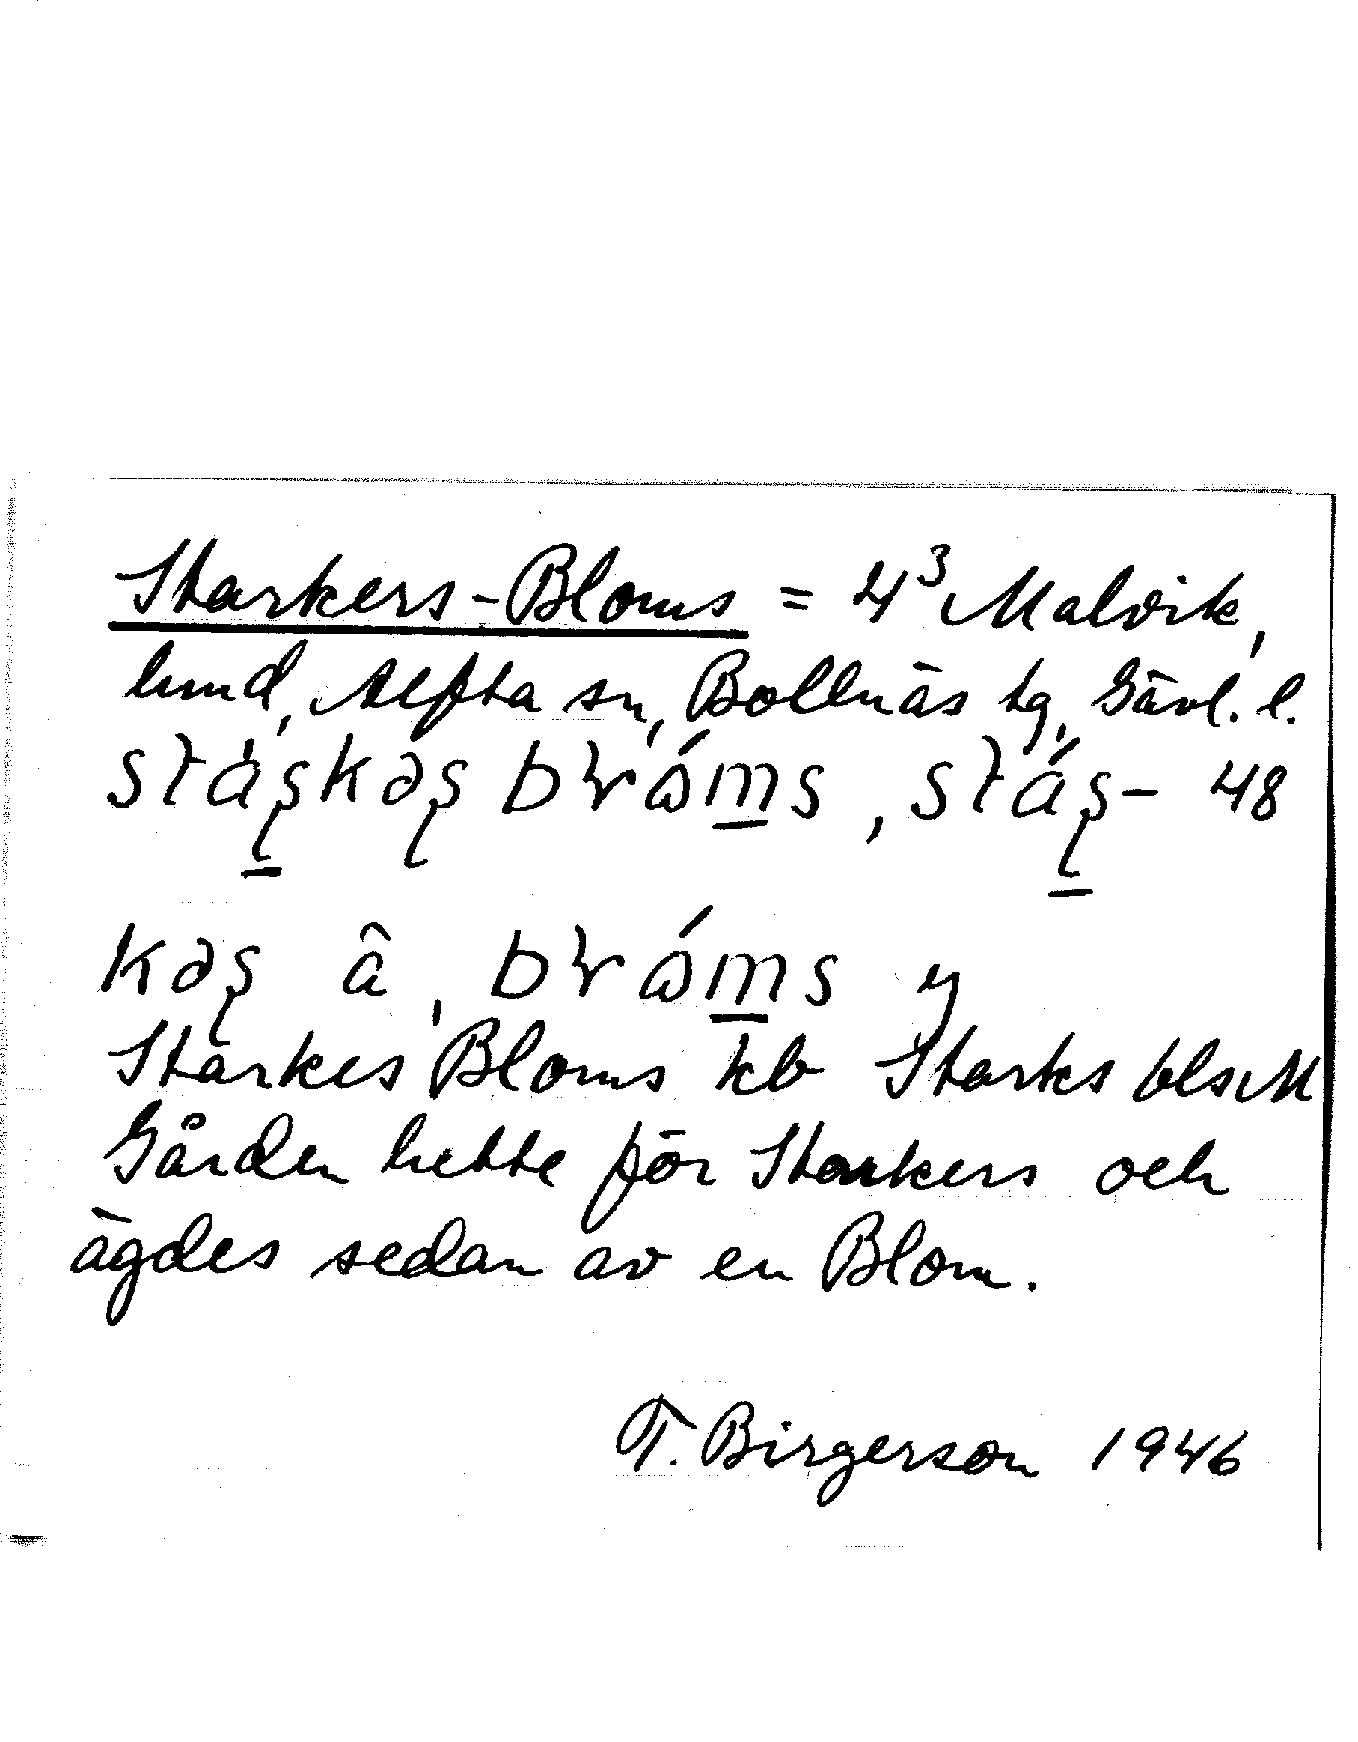 Starkers-Bloms = 4³ Malvik,
lund, Alfta sn, Bollnäs tg, Gävl. l.
48
Starkes Bloms kb Starks bls M
Gården hette förr Starkers och
ägdes sedan av en Blom.
T. Birgerson 1946